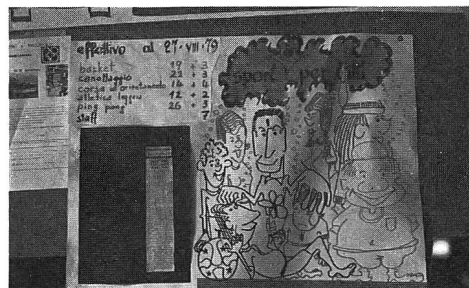 effettivo al 27·VIII·79
basket 19 + 3
canottaggio 23 + 3
corsa d'orientamento 16 + 4
atletica leggera 12 + 2
ping pong 26 + 3
staff 7
sport per tutti